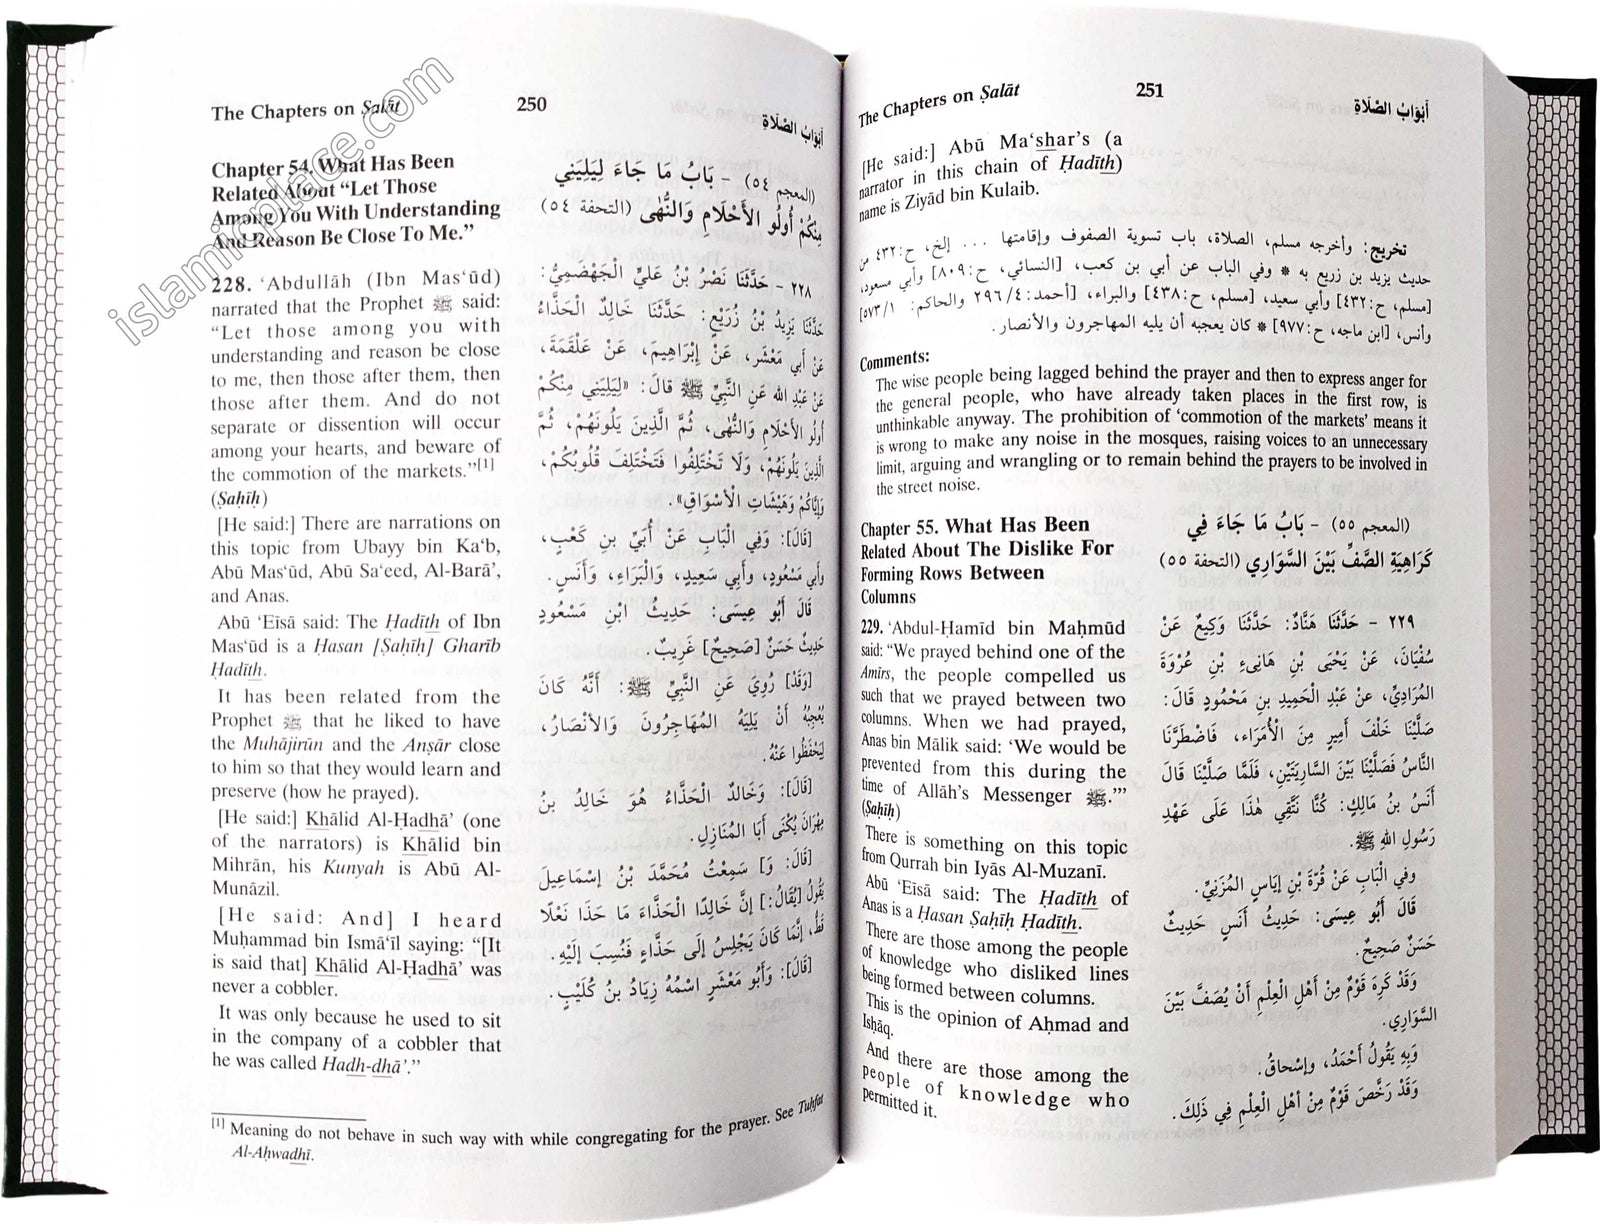 islamicplace.com
The Chapters on Ṣalāt
250
أَبْوَابُ الصَّلَاةِ
Chapter 54. What Has Been
Related About “Let Those
Among You With Understanding
And Reason Be Close To Me.”
228. ‘Abdullāh (Ibn Mas‘ūd)
narrated that the Prophet ﷺ said:
“Let those among you with
understanding and reason be close
to me, then those after them, then
those after them. And do not
separate or dissention will occur
among your hearts, and beware of
the commotion of the markets.”[1]
(Ṣaḥīḥ)
[He said:] There are narrations on
this topic from Ubayy bin Ka‘b,
Abū Mas‘ūd, Abū Sa‘eed, Al-Barā’,
and Anas.
Abū ‘Eīsā said: The Ḥadīth of Ibn
Mas‘ūd is a Ḥasan [Ṣaḥīḥ] Gharīb
Ḥadīth.
It has been related from the
Prophet ﷺ that he liked to have
the Muhājirūn and the Anṣār close
to him so that they would learn and
preserve (how he prayed).
[He said:] Khālid Al-Ḥadhā’ (one
of the narrators) is Khālid bin
Mihrān, his Kunyah is Abū Al-
Munāzil.
[He said: And] I heard
Muḥammad bin Ismā‘īl saying: “[It
is said that] Khālid Al-Ḥadhā’ was
never a cobbler.
It was only because he used to sit
in the company of a cobbler that
he was called Hadh-dhā’.”
(المعجم ٥٤) - بَابُ مَا جَاءَ لِيَلِيَنِي
مِنْكُمْ أُولُو الأَحْلَامِ وَالنُّهَى (التحفة ٥٤)
٢٢٨ - حَدَّثَنَا نَصْرُ بْنُ عَلِيٍّ الْجَهْضَمِيُّ:
حَدَّثَنَا يَزِيدُ بْنُ زُرَيْعٍ: حَدَّثَنَا خَالِدٌ الْحَذَّاءُ
عَنْ أَبِي مَعْشَرٍ، عَنْ إِبْرَاهِيمَ، عَنْ عَلْقَمَةَ،
عَنْ عَبْدِ الله عَنِ النَّبِيِّ ﷺ قالَ: «لِيَلِيَنِي مِنْكُمْ
أُولُو الأَحْلَامِ وَالنُّهَى، ثُمَّ الَّذِينَ يَلُونَهُمْ، ثُمَّ
الَّذِينَ يَلُونَهُمْ، وَلَا تَخْتَلِفُوا فَتَخْتَلِفَ قُلُوبُكُمْ،
وَإِيَّاكُمْ وَهَيْشَاتِ الْأَسْوَاقِ».
[قَالَ]: وَفِي الْبَابِ عَنْ أُبَيِّ بنِ كَعْبٍ،
وأَبِي مَسْعُودٍ، وأَبِي سَعِيدٍ، وَالْبَرَاءِ، وَأَنَسٍ.
قَالَ أَبُو عِيسَى: حَدِيثُ ابْنِ مَسْعُودٍ
حَدِيثٌ حَسَنٌ [صَحِيحٌ] غَرِيبٌ.
[وَقَدْ] رُوِيَ عَنِ النَّبِيِّ ﷺ: أَنَّهُ كَانَ
يُعْجِبُهُ أَنْ يَلِيَهُ الْمُهَاجِرُونَ وَالأَنْصَارُ،
لِيَحْفَظُوا عَنْهُ.
[قَالَ]: وَخَالِدٌ الْحَذَّاءُ هُوَ خَالِدُ بنُ
مِهْرَانَ يُكْنَى أَبَا الْمُنَازِلِ.
[قَالَ: وَ] سَمِعْتُ مُحَمَّدَ بْنَ إِسْمَاعِيلَ
يَقُولُ [يُقَالُ:] إِنَّ خَالِدًا الْحَذَّاءَ مَا حَذَا نَعْلًا
قَطُّ، إِنَّمَا كَانَ يَجْلِسُ إِلَى حَذَّاءٍ فَنُسِبَ إِلَيْهِ.
[قَالَ]: وَأَبُو مَعْشَرٍ اسْمُهُ زِيَادُ بنُ كُلَيْبٍ.
[1] Meaning do not behave in such way with while congregating for the prayer. See Tuhfat
Al-Aḥwadhī.
The Chapters on Ṣalāt
251
أَبْوَابُ الصَّلَاةِ
[He said:] Abū Ma‘shar’s (a
narrator in this chain of Ḥadīth)
name is Ziyād bin Kulaib.
تخريج: وأخرجه مسلم، الصلاة، باب تسوية الصفوف وإقامتها ... إلخ، ح:٤٣٢ من
حديث يزيد بن زريع به * وفي الباب عن أبي بن كعب، [النسائي، ح:٨٠٩] وأبي مسعود،
[مسلم، ح:٤٣٢] وأبي سعيد، [مسلم، ح:٤٣٨] والبراء، [أحمد:٢٩٦/٤ والحاكم: ٥٧٣/١]
وأنس، [ابن ماجه، ح:٩٧٧] * كان يعجبه أن يليه المهاجرون والأنصار.
Comments:
The wise people being lagged behind the prayer and then to express anger for
the general people, who have already taken places in the first row, is
unthinkable anyway. The prohibition of ‘commotion of the markets’ means it
is wrong to make any noise in the mosques, raising voices to an unnecessary
limit, arguing and wrangling or to remain behind the prayers to be involved in
the street noise.
Chapter 55. What Has Been
Related About The Dislike For
Forming Rows Between
Columns
229. ‘Abdul-Ḥamīd bin Maḥmūd
said: “We prayed behind one of the
Amīrs, the people compelled us
such that we prayed between two
columns. When we had prayed,
Anas bin Mālik said: ‘We would be
prevented from this during the
time of Allāh’s Messenger ﷺ.’”
(Ṣaḥīḥ)
There is something on this topic
from Qurrah bin Iyās Al-Muzanī.
Abū ‘Eīsā said: The Ḥadīth of
Anas is a Ḥasan Ṣaḥīḥ Ḥadīth.
There are those among the people
of knowledge who disliked lines
being formed between columns.
This is the opinion of Aḥmad and
Isḥāq.
And there are those among the
people of knowledge who
permitted it.
(المعجم ٥٥) - بَابُ مَا جَاءَ فِي
كَرَاهِيَةِ الصَّفِّ بَيْنَ السَّوَارِي (التحفة ٥٥)
٢٢٩ - حَدَّثَنَا هَنَّادٌ: حَدَّثَنَا وَكِيعٌ عَنْ
سُفْيَانَ، عَنْ يَحْيَى بْنِ هَانِىءِ بْنِ عُرْوَةَ
المُرَادِيِّ، عنْ عَبْدِ الْحَمِيدِ بنِ مَحْمُودٍ قَالَ:
صَلَّيْنَا خَلْفَ أَمِيرٍ مِنَ الْأُمَرَاءِ، فَاضْطَرَّنَا
النَّاسُ فَصَلَّيْنَا بَيْنَ السَّارِيَتَيْنِ، فَلَمَّا صَلَّيْنَا قَالَ
أَنَسُ بنُ مَالِكٍ: كُنَّا نَتَّقِي هٰذَا عَلَى عَهْدِ
رَسُولِ اللهِ ﷺ.
وفي الْبَابِ عَنْ قُرَّةَ بْنِ إِيَاسٍ الْمُزَنِيِّ.
قَالَ أَبُو عِيسَى: حَدِيثُ أَنَسٍ حَدِيثٌ
حَسَنٌ صَحِيحٌ.
وَقَدْ كَرِهَ قَوْمٌ مِنْ أَهْلِ الْعِلْمِ أَنْ يُصَفَّ بَيْنَ
السَّوَارِي.
وَبِهِ يَقُولُ أَحْمَدُ، وإِسْحاقُ.
وَقَدْ رَخَّصَ قَوْمٌ مِنْ أَهْلِ الْعِلْمِ فِي ذَلِكَ.